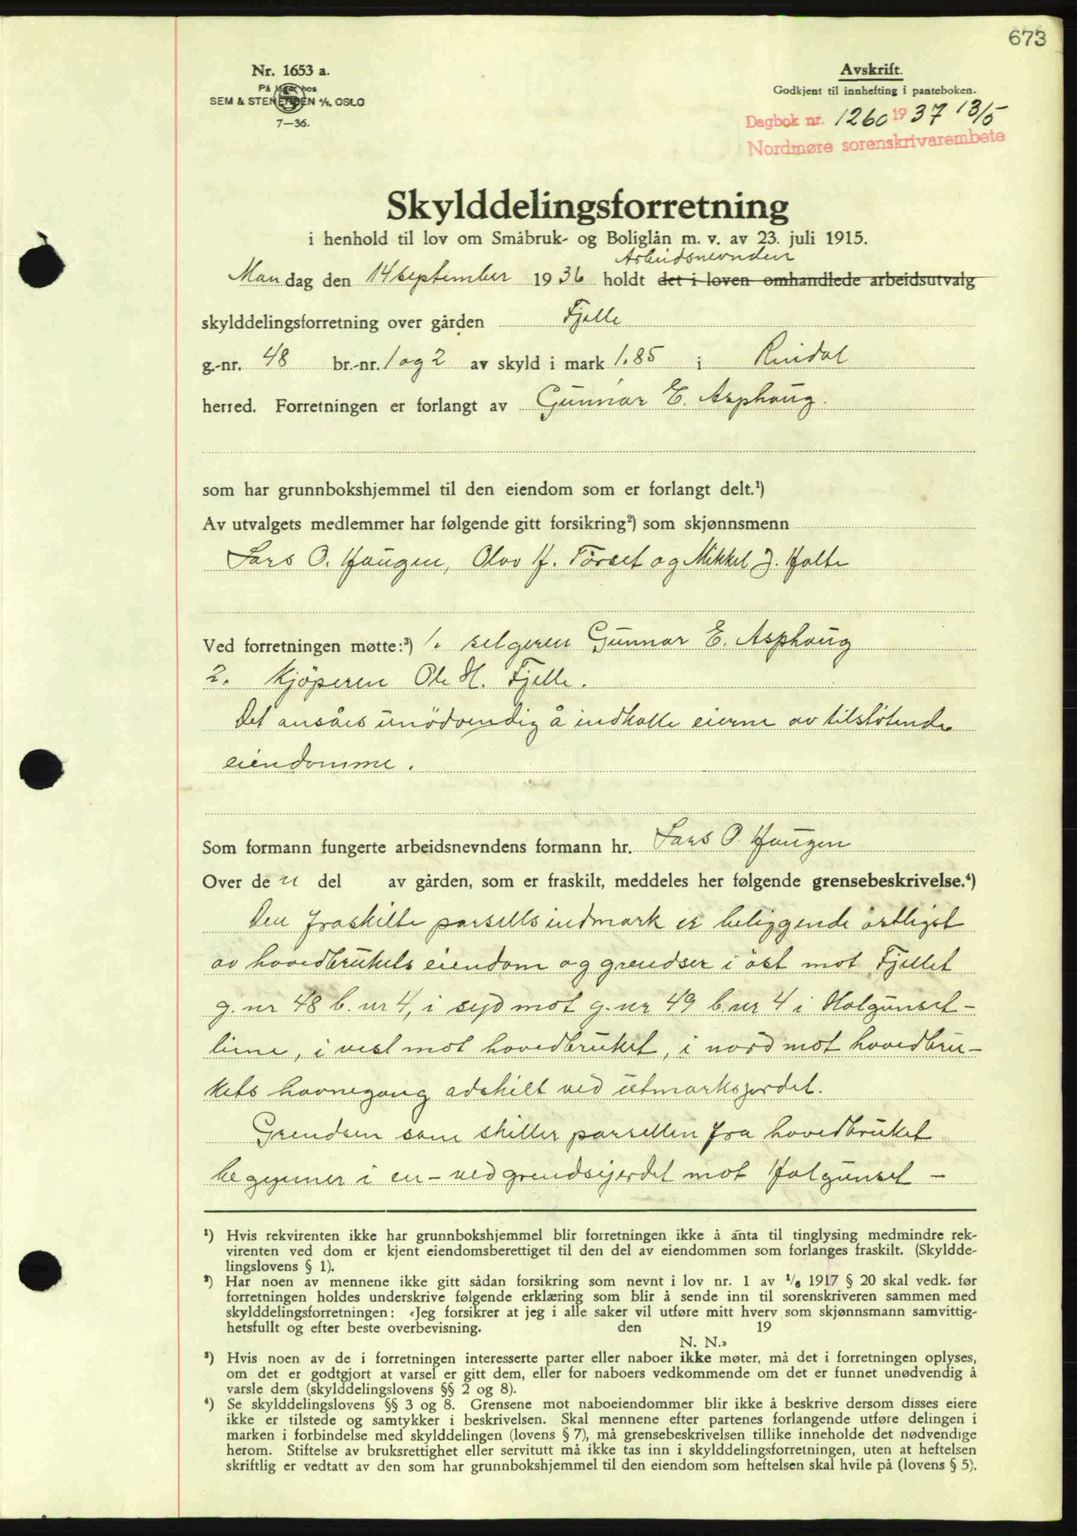 673
Nr. 1653 a.
På lager hos
SEM & STENERSEN A/S. OSLO
7—36.
Avskrift.
Godkjent til innhefting i panteboken.
Dagbok nr. 1260 1937 13/5
Nordmøre sorenskrivarembete
Skylddelingsforretning
i henhold til lov om Småbruk- og Boliglån m. v. av 23. juli 1915.
Arbeidsnevnden
Mandag den 14 september 1936 holdt det i loven omhandlede arbeidsutvalg
skylddelingsforretning over gården Fjelle
g.-nr. 48 br.-nr. 1 og 2 av skyld i mark 1.85 i Rindal
herred. Forretningen er forlangt av Gunnar E. Asphaug.
som har grunnbokshjemmel til den eiendom som er forlangt delt.¹)
Av utvalgets medlemmer har følgende gitt forsikring²) som skjønnsmenn
Lars O. Haugen, Olav H. Tørset og Mikkel J. Holte
Ved forretningen møtte:³) 1. selgeren Gunnar E. Asphaug
2. Kjöperen Ole H. Fjelle.
Det ansåes unödvendig å indkalle eierne av tilstötende
eiendomme.
Som formann fungerte arbeidsnevndens formann hr. Lars O. Haugen
Over den del av gården, som er fraskilt, meddeles her følgende grensebeskrivelse.⁴)
Den fraskilte parsells indmark er beliggende östligst
av hovedbrukets eiendom og grendser i öst mot Fjellet
g. nr 48 b. nr 4, i syd mot g. nr 49 b. nr 4 i Halgunset-
liene, i vest mot hovedbruket, i nord mot hovedbru-
kets havnegang adskilt ved utmarksgjerdet.
Grendsen som skiller parsellen fra hovedbruket
begynner i en - ved grendsegjerdet mot Halgunset -
¹) Hvis rekvirenten ikke har grunnbokshjemmel blir forretningen ikke å anta til tinglysing medmindre rek-
virenten ved dom er kjent eiendomsberettiget til den del av eiendommen som forlanges fraskilt. (Skyldde-
lingslovens § 1).
²) Har noen av mennene ikke gitt sådan forsikring som nevnt i lov nr. 1 av 1/6 1917 § 20 skal vedk. før
forretningen holdes underskrive følgende erklæring som blir å sende inn til sorenskriveren sammen med
skylddelingsforretningen: «Jeg forsikrer at jeg i alle saker vil utføre mitt hverv som skjønnsmann samvittig-
hetsfullt og efter beste overbevisning. den 19
N. N.»
³) Hvis noen av de i forretningen interesserte parter eller naboer ikke møter, må det i forretningen oplyses,
om det er godtgjort at varsel er gitt dem, eller for naboers vedkommende om det er funnet unødvendig å
varsle dem (skylddelingslovens §§ 2 og 8).
⁴) Se skylddelingslovens §§ 3 og 8. Grensene mot naboeiendommer blir ikke å beskrive dersom disses eiere
ikke er tilstede og samtykker i beskrivelsen. Skal mennene efter partenes forlangende utføre delingen i
marken i forbindelse med skylddelingen (lovens § 7), må grensebeskrivelsen tillike inneholde det nødvendige
herom. Stiftelse av bruksrettighet eller servitutt må ikke tas inn i skylddelingsforretningen, uten at heftelsen
skriftlig er vedtatt av den som har grunnbokshjemmel til den eiendom som heftelsen skal hvile på (lovens § 5).